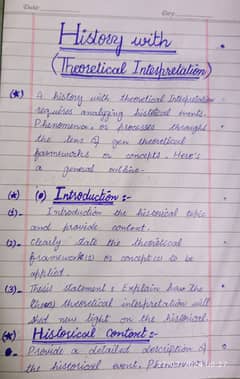 Date
Day
History with
(Theoretical Interpretation)
(*) A history with theoretical Interpretation
requires analyzing historical events.
Phenomenon, or processes through
the lens of theoretical
frameworks or concepts. Here's
a general outline-
(*) (•) Introduction :-
(1)- Introduction the historical topic
and provide content.
(2)- Clearly state the theoretical
framework(s) or concept(s) to be
applied.
(3)- Thesis statement : Explain how the
theoretical interpretation will
shed new light on the historical.
(*) Historical Context :-
Provide a detailed description of
the historical event, Phenomenon